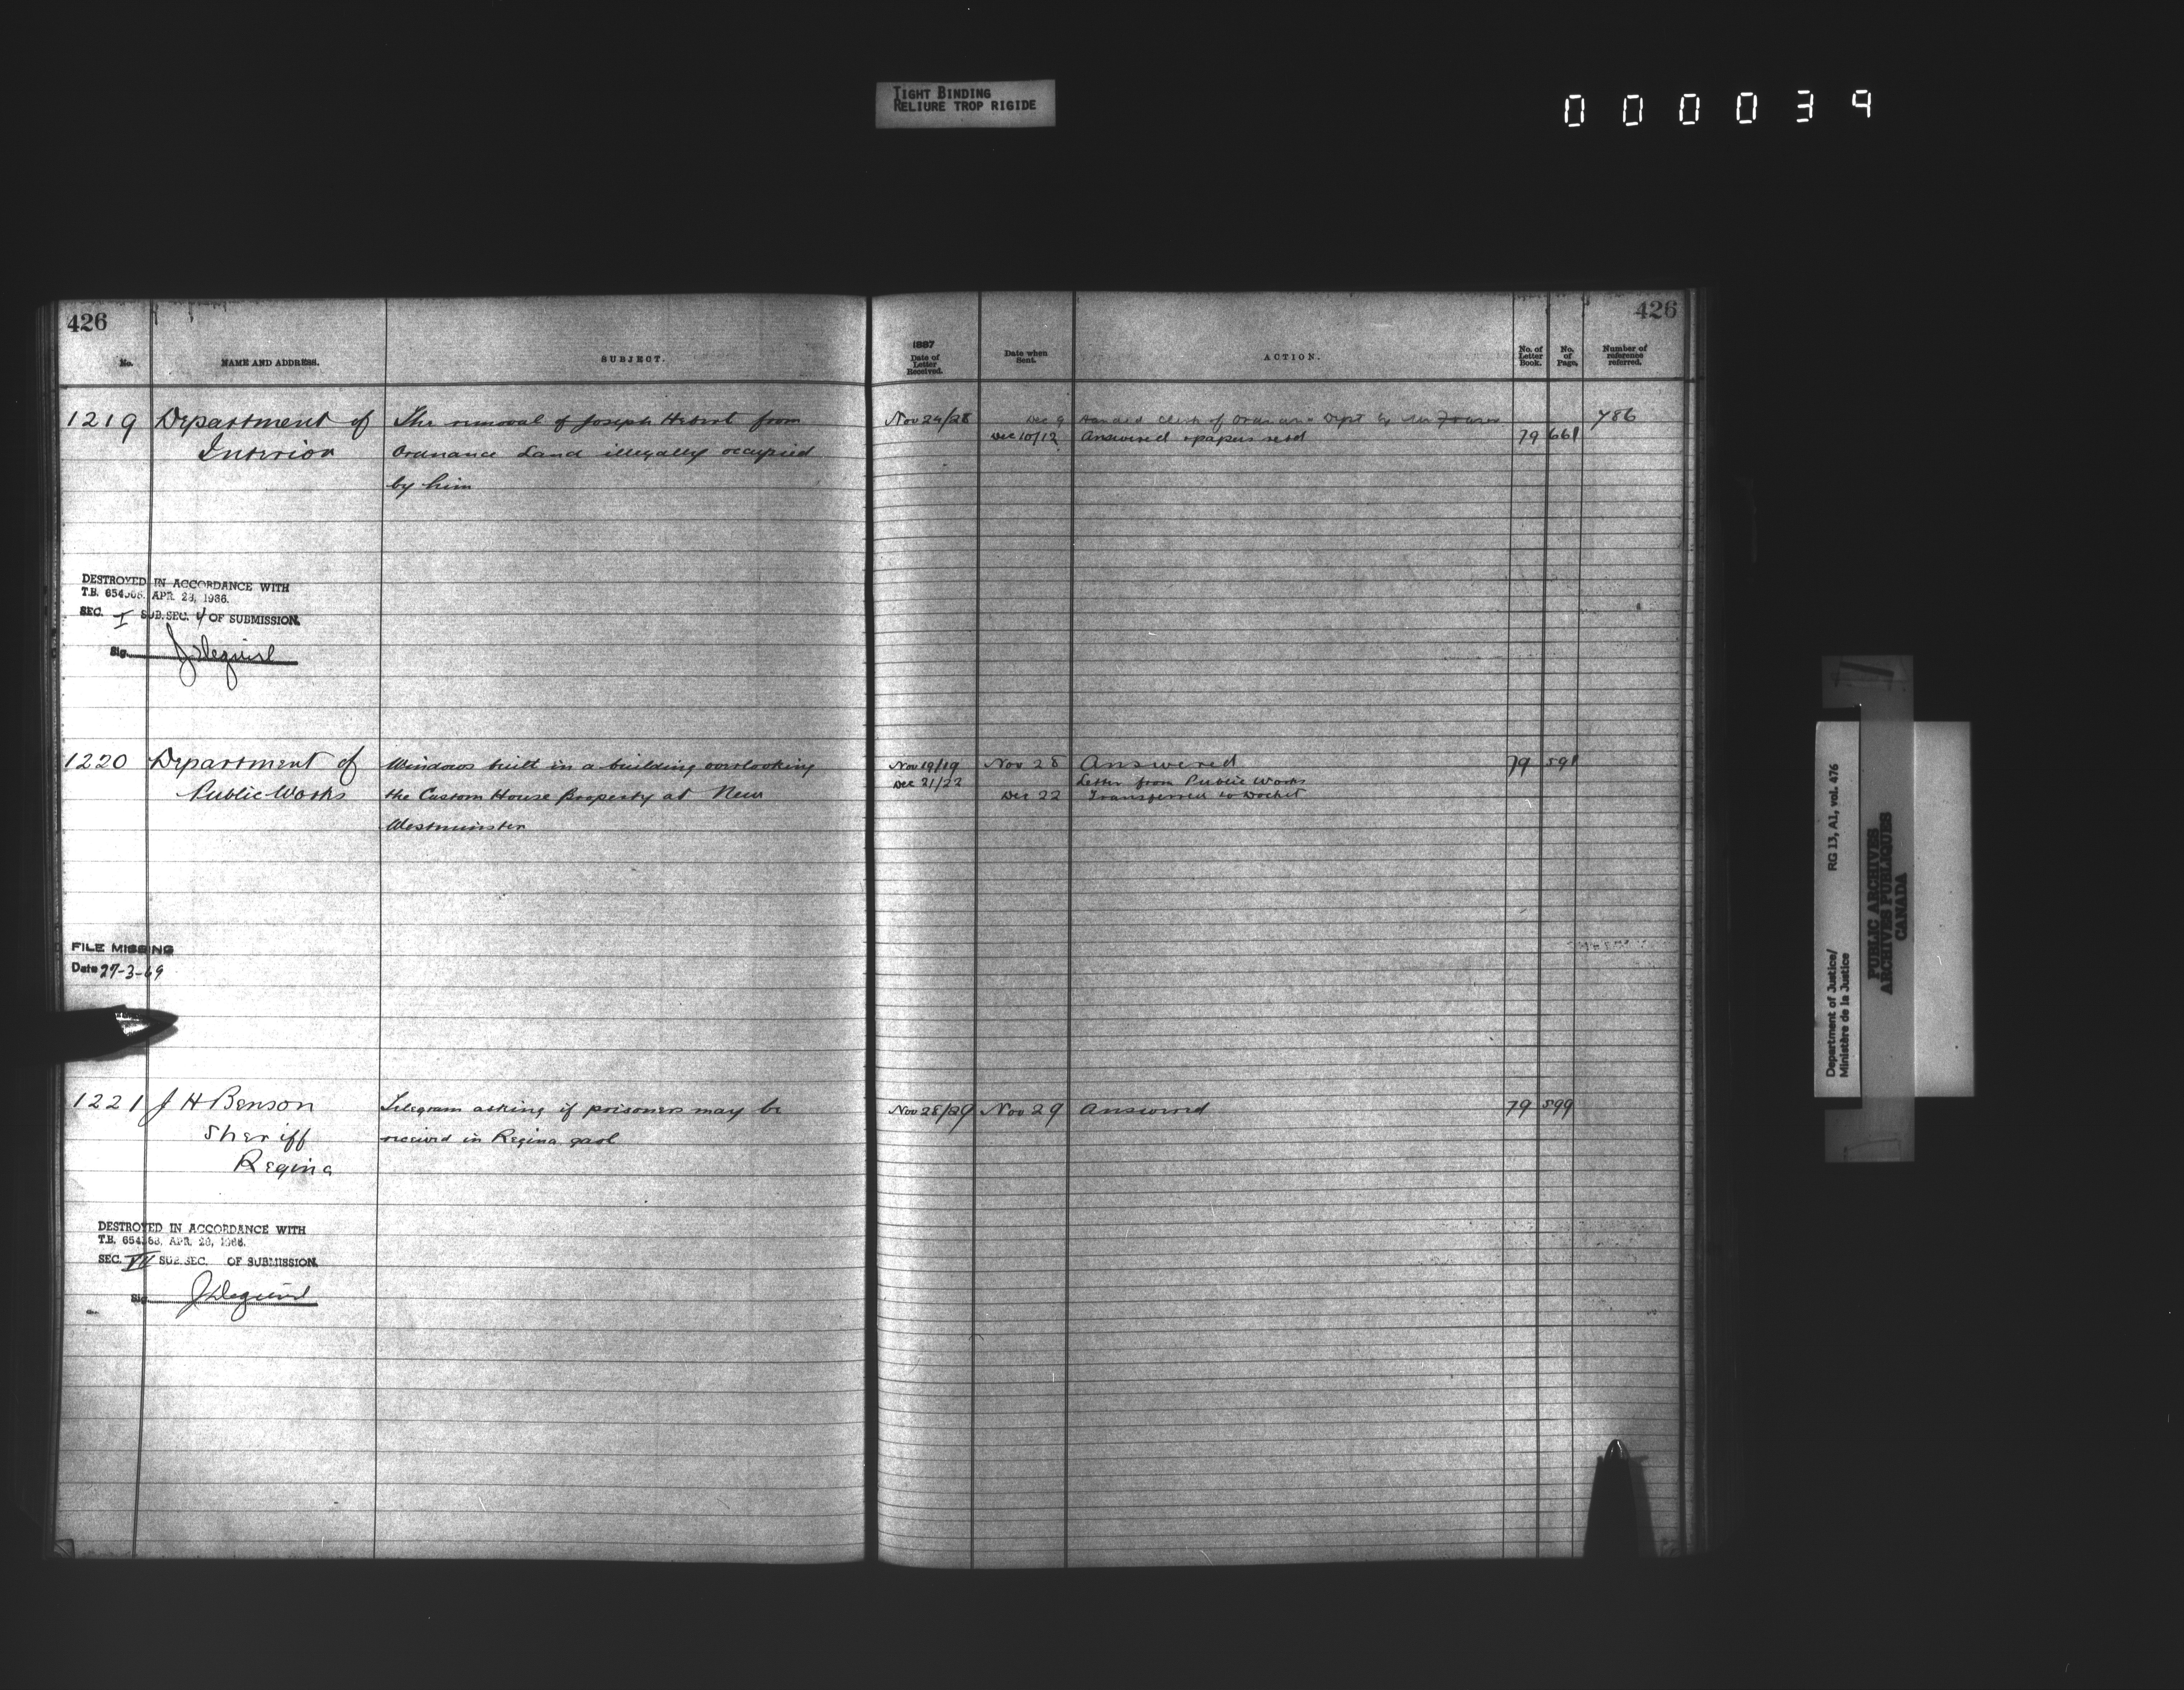 TIGHT BINDING
RELIURE TROP RIGIDE
000039
426
No. NAME AND ADDRESS. SUBJECT.
1219 Department of The removal of Joseph Hebert from
Interior Ordnance Land illegally occupied
by him
DESTROYED IN ACCORDANCE WITH
T.B. APR. 28, 1966.
SEC. I SUB.SEC. 4 OF SUBMISSION.
Sig.
1220 Department of Windows built in a building overlooking
Public Works the Custom House Property at New
Westminster
FILE MISSING
Date 27-3-69
1221 J H Benson Telegram asking if prisoners may be
Sheriff received in Regina gaol
Regina
DESTROYED IN ACCORDANCE WITH
T.B. APR. 28, 1966.
SEC. VII SUB.SEC. OF SUBMISSION.
Sig.
426
1897
Date of Letter Received. Date when Sent. ACTION. No. of Letter Book. No. of Page. Number of reference referred.
Nov 24/28 Dec 9 Handed Clerk of Dept by Mr 786
Dec 10/12 Answered & papers retd 79 661
Nov 19/19 Nov 28 Answered 79 591
Dec 21/22 Letter from Public Works
Dec 22 Transferred to Docket
Nov 28/29 Nov 29 Answered 79 599
Department of Justice/ RG 13, A1, vol. 476
Ministère de la Justice
PUBLIC ARCHIVES
ARCHIVES PUBLIQUES
CANADA